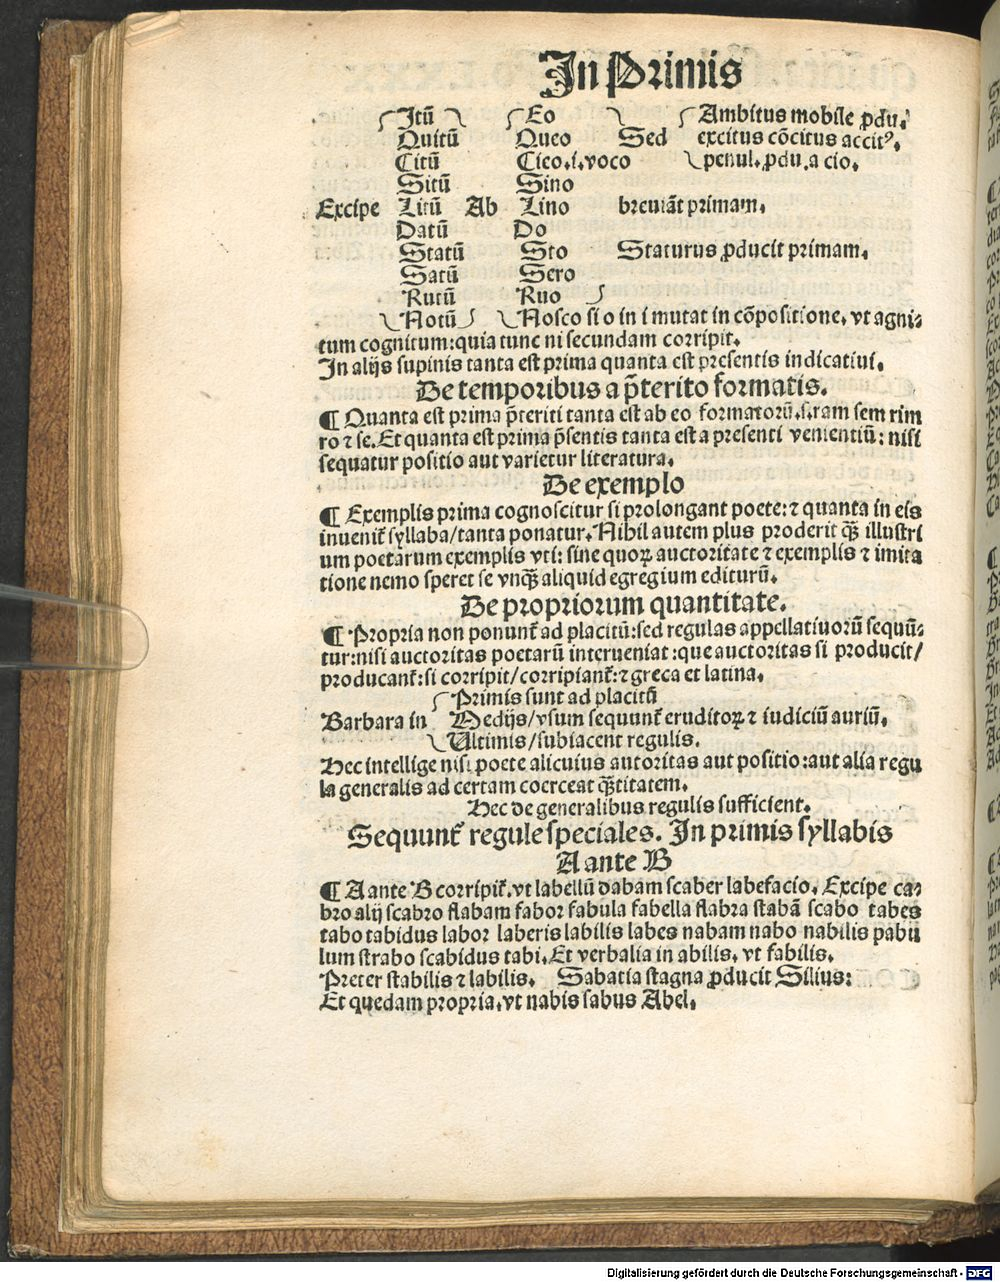 In Primis
Itū Eo Ambitus mobile ꝓdu.
Quitū Queo Sed excitus cōcitus accitꝰ.
Citū Cieo.i.voco penul.ꝓdu.a cio.
Sitū Sino
Excipe Litū Ab Lino breuiāt primam.
Datū Do
Statū Sto Staturus ꝓducit primam.
Satū Sero
Rutū Ruo
Notū Nosco si o in i mutat in cōpositione, vt agni⸗
tum cognitum:quia tunc ni secundam corripit.
In alijs supinis tanta est prima quanta est presentis indicatiui.
De temporibus a p̄terito formatis.
¶ Quanta est prima p̄teriti tanta est ab eo formatorū.s.ram sem rim
ro ⁊ se. Et quanta est prima p̄sentis tanta est a presenti venientiū: nisi
sequatur positio aut varietur literatura.
De exemplo
¶ Exemplis prima cognoscitur si prolongant poete:⁊ quanta in eis
inuenit᷑ syllaba/tanta ponatur. Nihil autem plus proderit q̄ꝫ illustri
um poetarum exemplis vti: sine quoꝝ auctoritate ⁊ exemplis ⁊ imita
tione nemo speret se vnq̄ꝫ aliquid egregium editurū.
De propriorum quantitate.
¶ Propria non ponunt᷑ ad placitū:sed regulas appellatiuorū sequū⸗
tur:nisi auctoritas poetarū interueniat:que auctoritas si producit/
producant᷑:si corripit/corripiant᷑:⁊ greca et latina.
Primis sunt ad placitū
Barbara in Medijs/vsum sequunt᷑ eruditoꝝ ⁊ iudiciū auriū.
Ultimis/subiacent regulis.
Hec intellige nisi poete alicuius autoritas aut positio:aut alia regu
la generalis ad certam coerceat q̄ꝫtitatem.
Hec de generalibus regulis sufficient.
Sequunt᷑ regule speciales. In primis syllabis
A ante B
¶ A ante B corripit᷑.vt labellū dabam scaber labefacio. Excipe ca⸗
bro alij scabro flabam fabor fabula fabella flabra stabā scabo tabes
tabo tabidus labor laberis labilis labes nabam nabo nabilis pabu
lum strabo scabidus tabi. Et verbalia in abilis. vt fabilis.
Preter stabilis ⁊ labilis. Sabatia stagna ꝓducit Silius:
Et quedam propria.vt nabis sabus Abel.
Digitalisierung gefördert durch die Deutsche Forschungsgemeinschaft - DFG